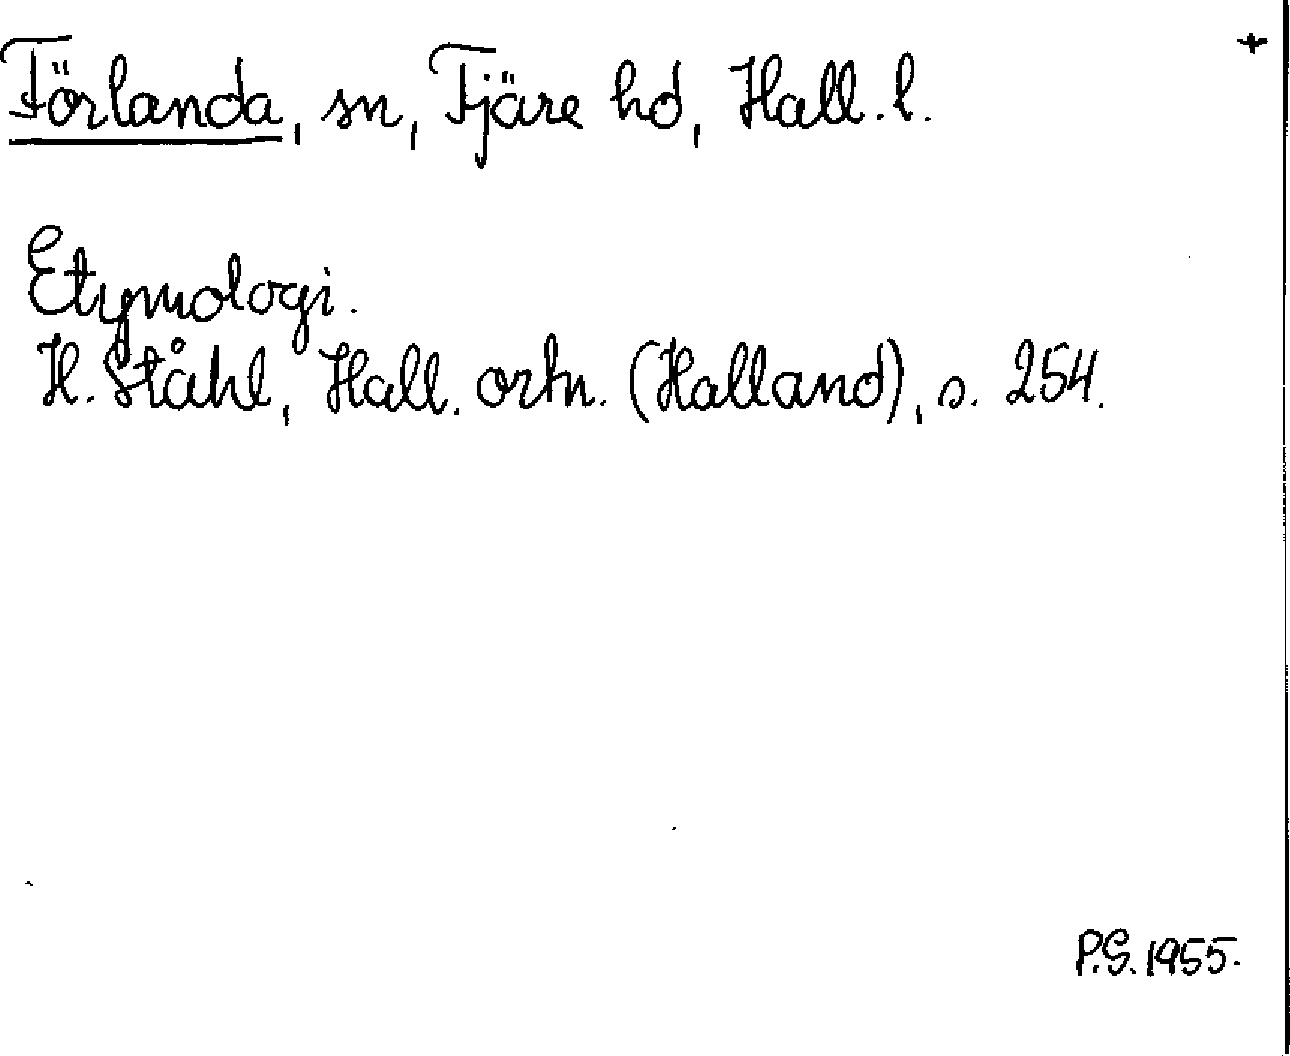 Förlanda, sn, Fjäre hd, Hall. l. +
Etymologi.
H. Ståhl, Hall. ortn. (Halland), s. 254.
P.G. 1955.